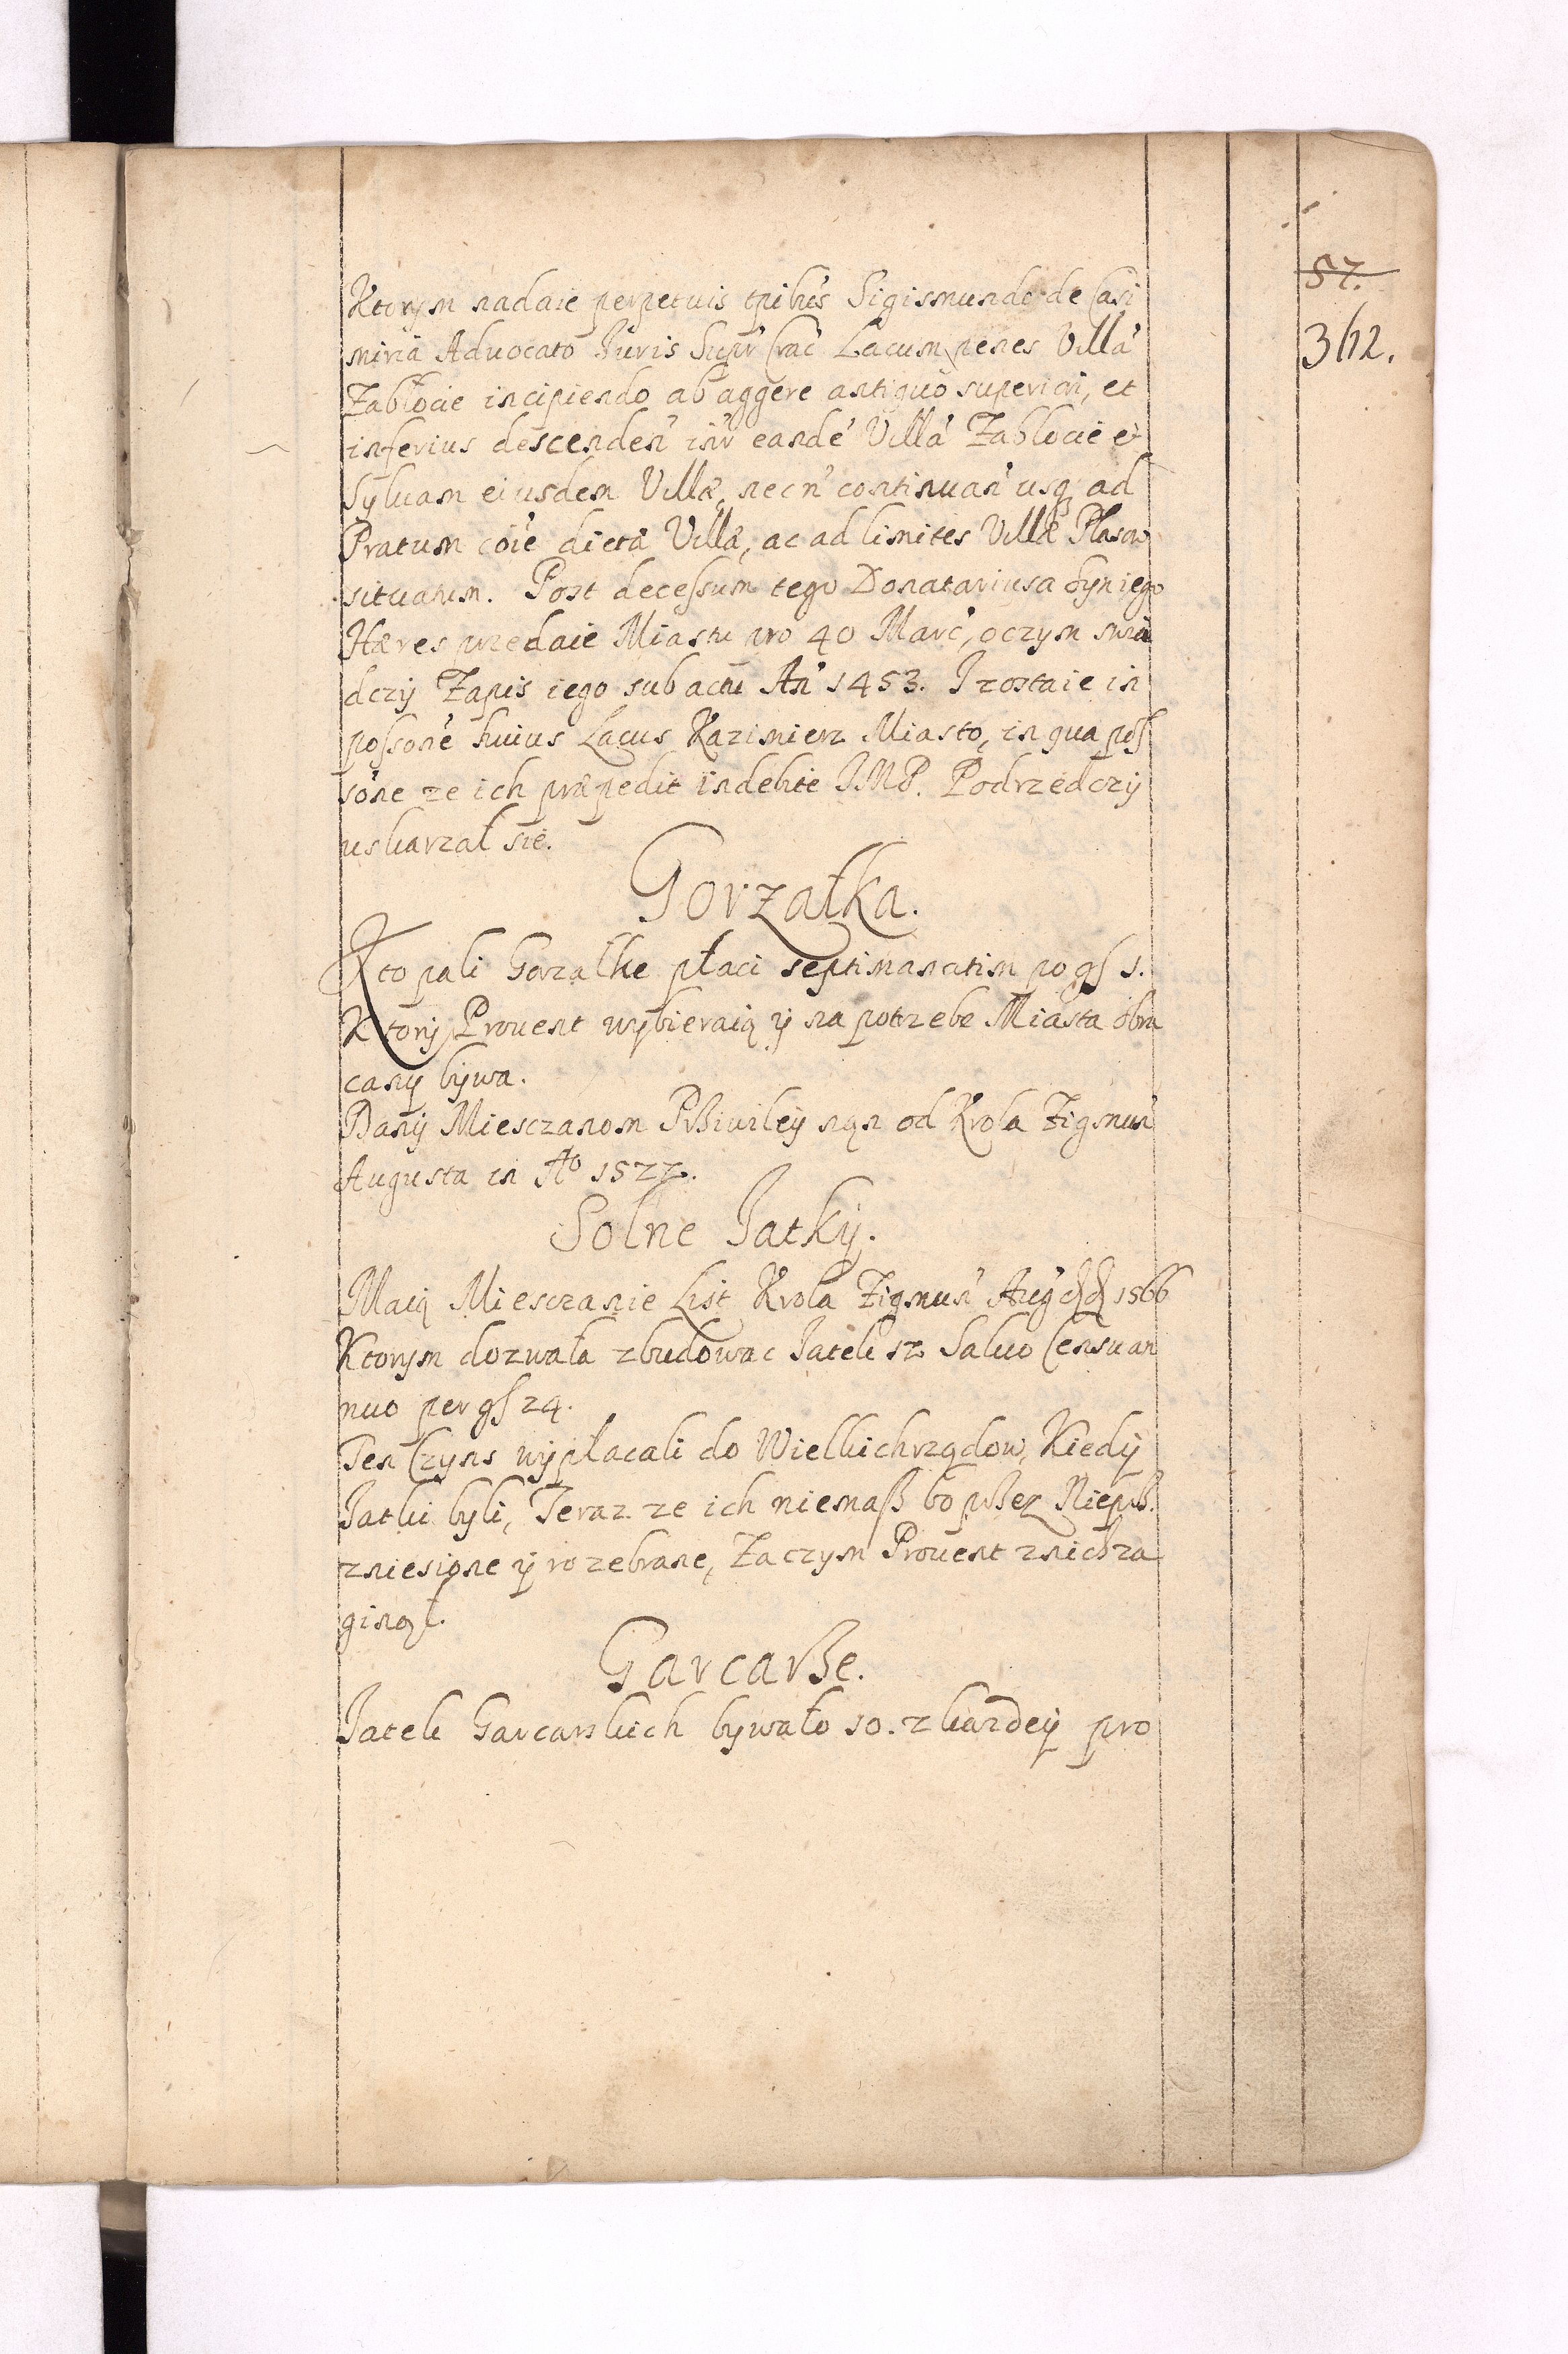 57.
342.
Ktorym nadaie perpetuis tpibus Sigismundo de Casi
miria Advocato Iuris Supr Crac Lacum penes Villa
Zabłocie incipiendo ab aggere antiquo superiori, et
inferius descenden intr eande Villa Zablocie et
Sylvam eiusdem Villæ, necn continuan usq ad
Pratum coie dicta Villæ, ac ad limites Villæ Plasow
situatum. Post decessum tego Donatariusa Syn iego
Hæres przedaie Miastu pro 40 Marc, o czym swia
dczy Zapis iego sub actu An 1453. I zostaie in
possone huius Lacus Kazimierz Miasto, in qua pos
sone ze ich præpedit indebite IMP. Podrzedczy
uskarzał sie.
Gorzałka.
Kto pali Gorzałke płaci septimanatim po gs 1.
Ktory Provent wybieraią y na potrzebe Miasta obra
cany bywa.
Dany Miesczanom Pßiviley nan od Krola Zigmun
Augusta in Aº 1577.
Solne Iatky.
Maią Miesczanie List Krola Zigmun Aug dd 1566
Ktorym dozwala zbudowac Iatek 12 Salvo Censu an
nuo per gs 24.
Ten Czyns wypłacali do Wielkichrządow, Kiedy
Iatki byli, Teraz ze ich niemaß bo pßez Niepß.
zniesione y rozebrane, Zaczym Provent znich za
ginął.
Garcarße.
Iatek Garcarskich bywało 10. z kazdey pro